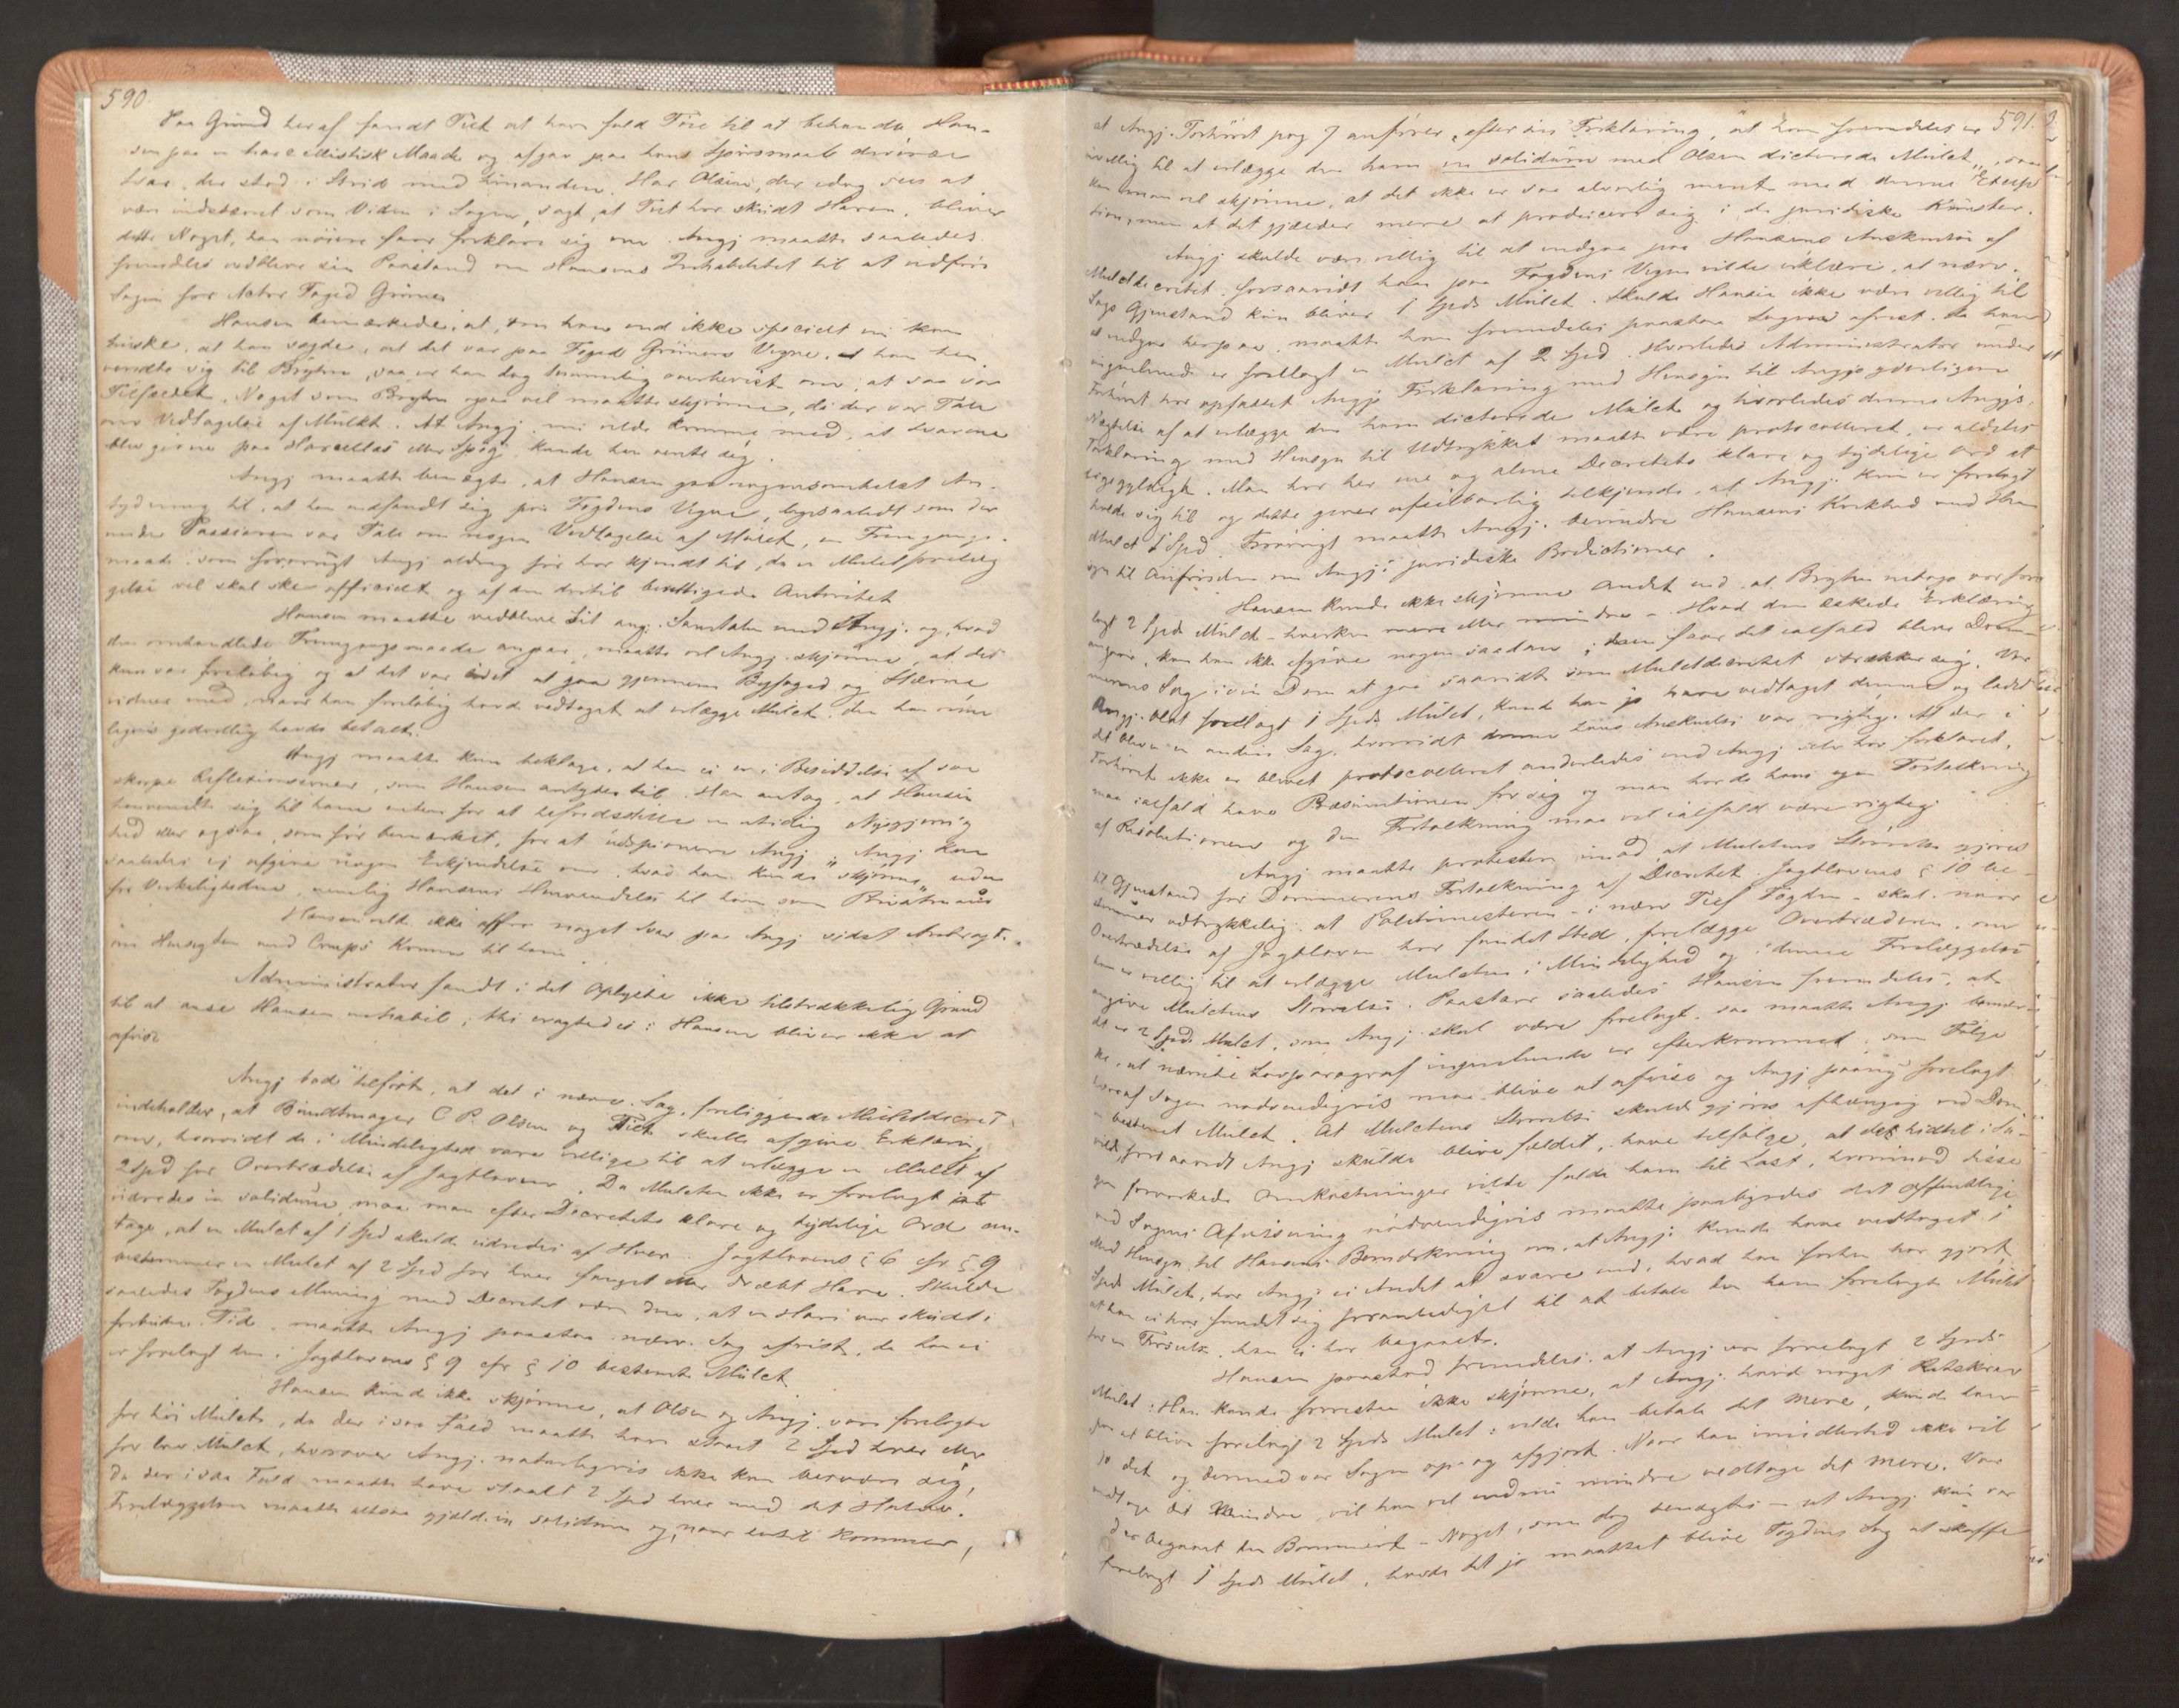 590.
Paa Grund heraf fandt Tiet at have fuld Föie til at behandle Han-
sen paa en harcellistisk Maade og afgav paa hans Spörsmaale diverse
Svar, der stod i Strid med hinanden. Har Olsen, der idag sees at
være indstævnet som Vidne i Sagen, sagt, at Tiet har skudt Haren, bliver
dette Noget, han nöiere faar forklare sig om. Angj maatte saaledes
fremdeles vedblive sin Paastand om Hansens Inhabilitet til at udföre
Sagen for Actor Foged Grüner
Hansen bemærkede, at, om han end ikke specielt nu kan
huske, at han sagde, at det var paa Foged Grüners Vegne, at han hen-
vendte sig til Bryhn, saa er han dog temmelig overbevist om, at saa var
Tilfældet, Noget som Bryhn ogsaa vel maatte skjönne, da der var Tale
om Vedtagelse af Mulkt. At Angj. nu vilde komme med, at Svarene
blev givne paa Harcellas eller Spög, kunde han vente sig.
Angj maatte benægte, at Hansen gav nogensomhelst An-
tydning til, at han indfandt sig paa Fogdens Vegne, ligesaalidt som der
under Passiaren var Tale om nogen Vedtagelse af Mulct, en Fremgangs-
maade som forövrigt Angj aldrig för har kjendt til, da en Mulctforelæg
gelse vel skal ske officielt og af den dertil berettigede Autoritet
Hansen maatte vedblive Sit ang. Samtalen med Angj. og, hvad
den omhandlede Fremgangsmaade angaar, maatte vel Angj. skjönne, at det
kun var forelöbig og at det var Intet at gaa gjennem Byfoged og Stævne
vidner med, naar han forelöbig havde vedtaget at erlægge Mulct, den han rime
ligvis godvillig havde betalt.
Angj maatte kun beklage, at han ei er i Besiddelse af saa
skarpe Reflexionsevner, som Hansen antyder til. Han antog, at Hansen
henvendte sig til ham enten for at tilfredsstille en utidig Nysgjerrig
hed eller ogsaa, som för bemærket, for at udspionere Angj. Angj kan
saaledes ei afgive nogen Erkjendelse om, hvad han kunde "skjönne" uden
for Virkeligheden, nemlig Hansens Henvendelse til ham som Privatmand
Hansen vilde ikke offre noget Svar paa Angj sidst Anbragte.
om Hensigten med Comps Komme til ham.
Administrator fandt i det Oplyste ikke tilstrækkelig Grund
til at anse Hansen inhabil; thi eragtedes: Hansen bliver ikke at
afvise
Angj bad tilfört, at det i nærv. Sag. foreliggende Mulctdecret
indeholder, at Bundtmager C P. Olsen og Tiet skulle afgive Erklæring
om, hvorvidt de i Mindelighed vare villige til at erlægge en Mulct af
2 Spd for Overtrædelse af Jagtloven. Da Mulcten ikke er forelagt at
udredes in solidum, maa man efter Decretets klare og tydelige Ord an-
tage, at en Mulct af 1 Spd skulde udredes af Hver. Jagtlovens § 6 cfr § 9
bestemmer en Mulct af 2 Spd for hver fanget eller dræbt Hare. Skulde
saaledes Fogdens Mening med Decretet være den, at en Hare var skudt i
forbuden Tid, maatte Angj paastaa nærv. Sag afvist, da han ei
er forelagt den i Jagtlovens § 9 cfr § 10 bestemte Mulct
Hansen kunde ikke skjönne, at Olsen og Angj. vare forelagte
for höi Mulct, da der i saa Fald maatte have staaet 2 Spd hver eller
for lav Mulct, hvorover Angj. naturligvis ikke kan besvære sig,
da der i saa Fald maatte have staaet 1 Spd hver med det Halve.
Forelæggelsen maatte altsaa gjælde in solidum og, naar hertil kommer,
591.
at Angj. Forhöret pag 7 anförer, efter sin Forklaring, "at han fremdeles er
uvillig til at erlægge den ham in solidum med Olsen dicterede Mulct", saa
kan man vel skjönne, at det ikke er saa alvorlig ment med denne Excep
tion, men at det gjælder mere at producere sig i de juridiske Kunster.
Angj skulde være villig til at indgaa paa Hansens Anskuelse af
Mulctdecretet forsaavidt han paa Fogdens Vegne vilde erklære, at nærv.
Sags Gjenstand kun bliver 1 Spds Mulct. Skulde Hansen ikke være villig til
at indgaa herpaa, maatte han fremdeles paastaa Sagen afvist, da han
ingenlunde er forelagt en Mulct af 2 Spd. Hvorledes Administrator under
Forhöret har opfattet Angjs Forklaring med Hensyn til Angjs yderligere
Nægtelse af at erlægge den ham dicterede Mulct og hvorledes denne Angjs.
Forklaring med Hensyn til Udtrykket maatte være protocolleret, er aldeles
ligegyldigt. Man har her ene og alene Decretets klare og tydelige Ord at
holde sig til og dette giver ufeilbarlig tilkjende, at Angj. kun er forelagt
Mulct 1 Spd. Forövrigt maatte Angj. beundre Hansens Kiækhed med Hen
syn til Anförslen om Angjs juridiske Productioner.
Hansen kunde ikke skjönne Andet end at Bryhn netop var fore
lagt 2 Spds Mulct – hverken mere eller mindre. – Hvad den æskede Erklæring
angaar, kan han ikke afgive nogen saadan; den faar det ialfald blive Dom-
merens Sag i sin Dom at gaa saavidt som Mulctdecretet strækker sig. Var
Angj. blot forelagt 1 Spds Mulct, kunde han jo have vedtaget denne og ladet
det blive en anden Sag, hvorvidt denne hans Anskuelse var rigtig. At der i
Forhöret ikke er blevet protocolleret anderledes end Angj. selv har forklaret,
maa ialfald have Præsumtionen for sig og man havde hans egen Fortolkning
af Resolutionen og den Fortolkning maa vel ialfald være rigtig.
Angj maatte protestere imod, at Mulctens Störrelse gjöres
til Gjenstand for Dommerens Fortolkning af Decretet. Jagtlovens § 10 be-
stemmer udtrykkelig, at Politimesteren – i nærv Tilf Fogden – skal, naar
Overtrædelse af Jagtloven har fundet Sted, forelægge Overtræderen, om
han er villig til at erlægge Mulcten i Mindelighed og i denne Forelæggelse
angive Mulctens Störrelse. Paastaar saaledes Hansen fremdeles, at
det er 2 Spds Mulct, som Angj. skal være forelagt, saa maatte Angj bemær
ke, at nævnte Lovparagraf ingenlunde er efterkommet, som Fölge
hvoraf Sagen nödvendigvis maa blive at afvise og Angj paany forelagt
en bestemt Mulct. At Mulctens Störrelse skulde gjöres afhængig ved Dom,
vilde, forsaavidt Angj skulde blive fældet, have tilfölge, at det hidtil i Sa-
gen forvoldte Omkostninger vilde falde ham til Last, hvorimod disse
ved Sagens Afvisning nödvendigvis maatte paaligges det Offentlige
Med Hensyn til Hansens Bemærkning om, at Angj. kunde have vedtaget 1
Spds Mulct, har Angj ei Andet at svare end, hvad han forhen har gjort,
at han ei har fundet sig foranlediget til at betale den ham forelagte Mulct
for en Forseelse, han ei har begaaet.
Hansen paastod fremdeles, at Angj var forelagt 2 Spds
Mulct: Han kunde forresten ikke skjönne, at Angj. havde noget Retskrav
paa at blive forelagt 2 Spds Mulct; vilde han betale det Mere, kunde han
jo det og dermed var Sagen op- og afgjort. Naar han imidlertid ikke vil
vedtage det Mindre, vil han vel endnu mindre vedtage det Mere. Var
der begaaet den Bommert – Noget, som dog benægtes – at Angj. kun var
forelagt 1 Spds Mulct, havde det jo maattet blive Fogdens Sag at skaffe